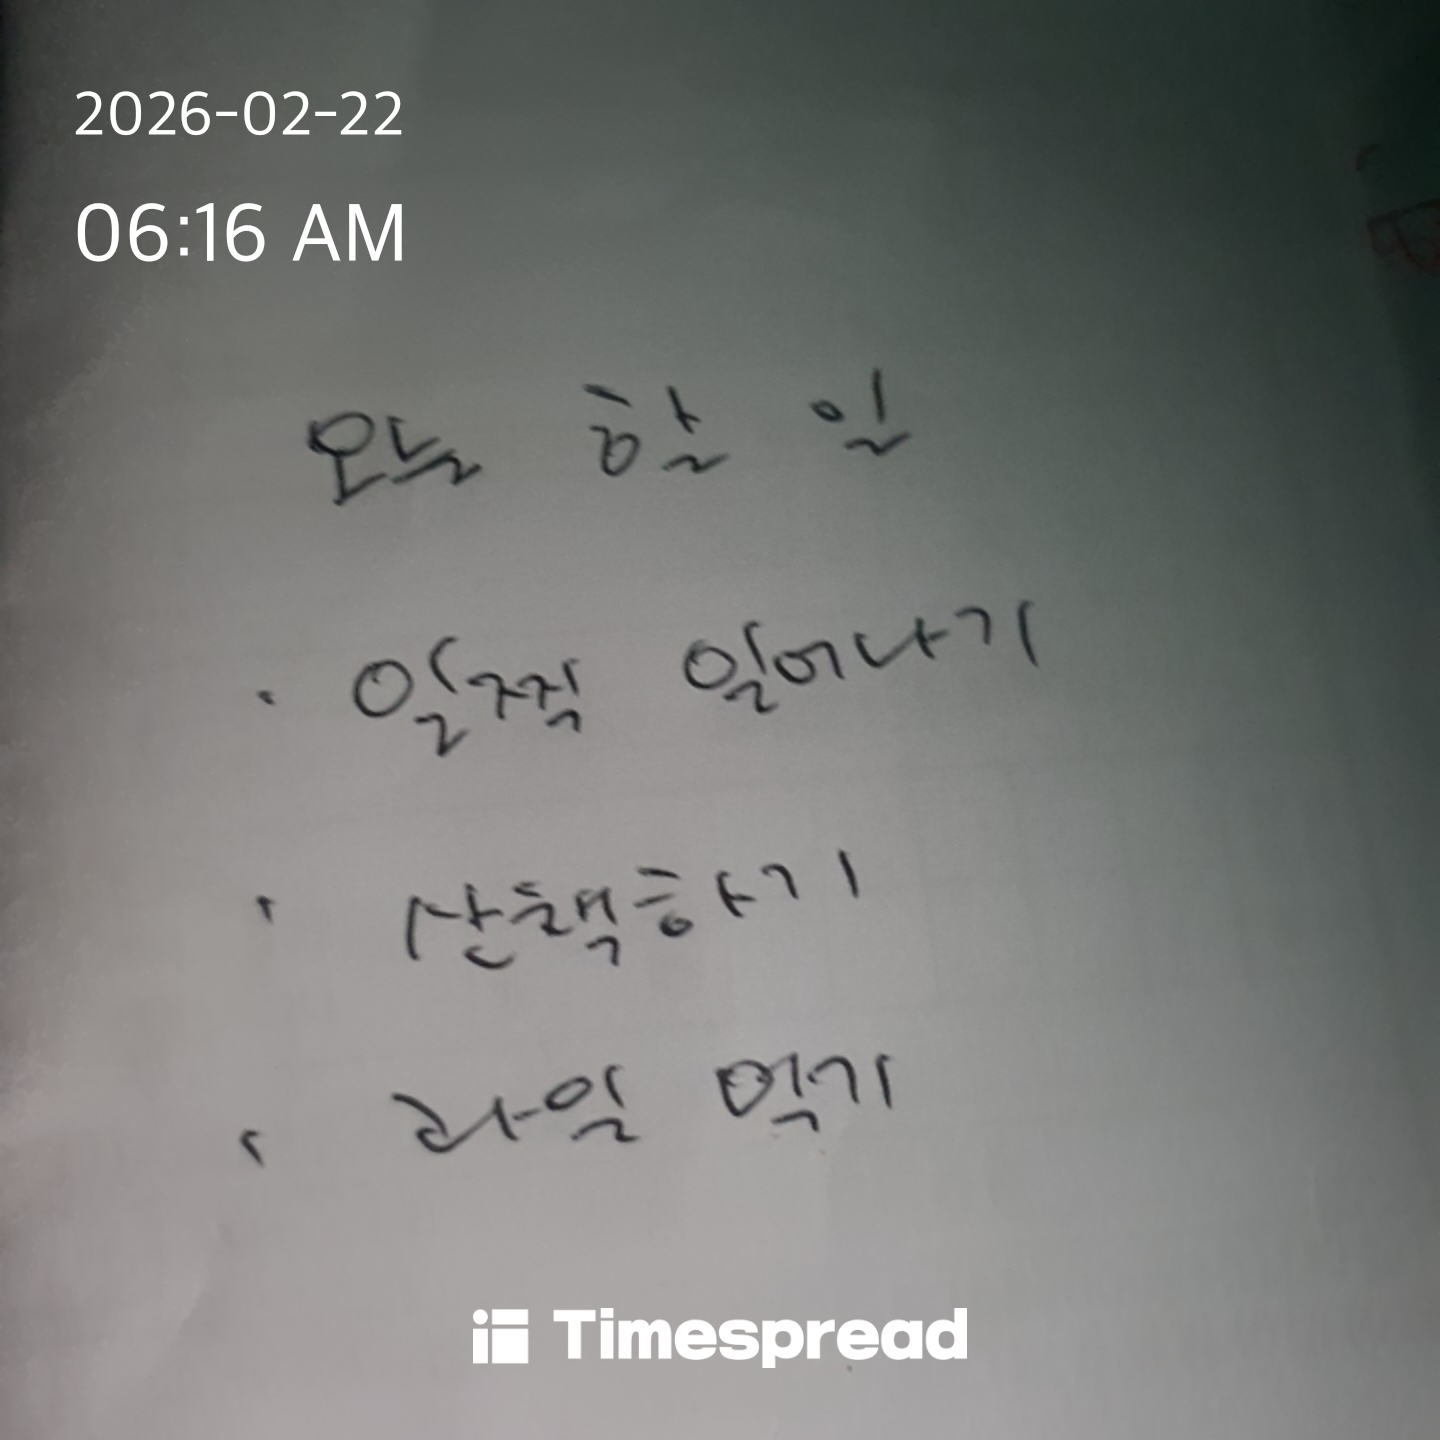 2026-02-22
06:16 AM
오늘 할 일
· 일찍 일어나기
· 산책하기
· 과일 먹기
Timespread